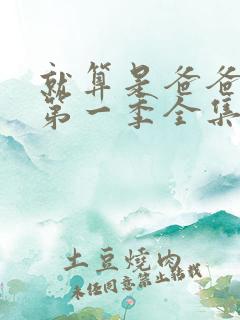 就算是爸爸
第一季全集
土豆燒肉
未经同意禁止转载